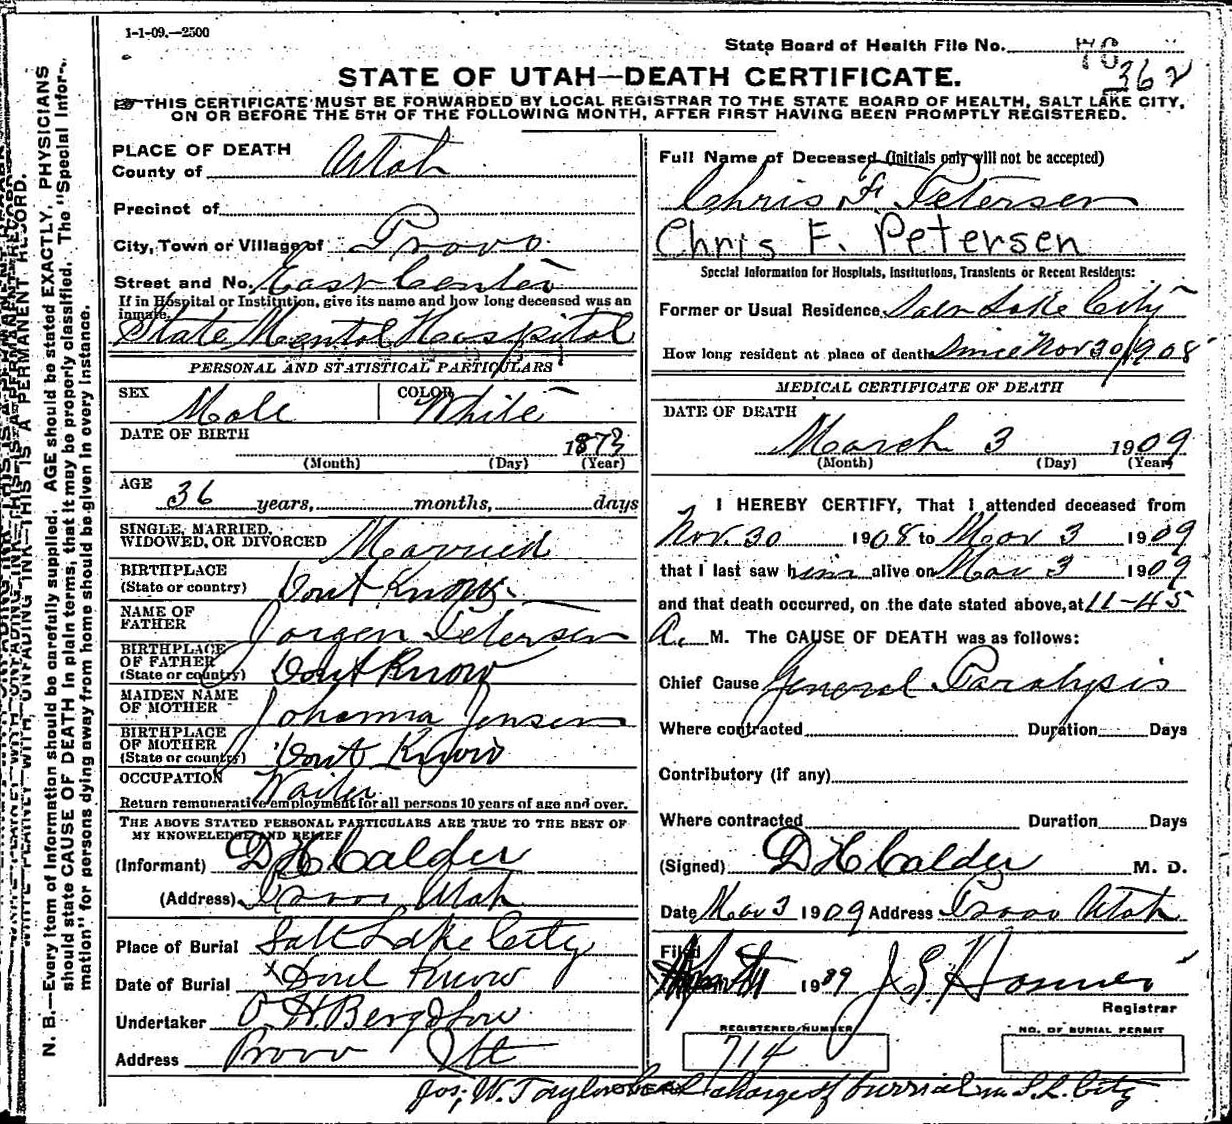 1-1-09.—2500
State Board of Health File No.
362
STATE OF UTAH—DEATH CERTIFICATE.
THIS CERTIFICATE MUST BE FORWARDED BY LOCAL REGISTRAR TO THE STATE BOARD OF HEALTH, SALT LAKE CITY,
ON OR BEFORE THE 5TH OF THE FOLLOWING MONTH, AFTER FIRST HAVING BEEN PROMPTLY REGISTERED.
N. B.—Every item of information should be carefully supplied. AGE should be stated EXACTLY. PHYSICIANS
should state CAUSE OF DEATH in plain terms, that it may be properly classified. The "Special Infor-
mation" for persons dying away from home should be given in every instance.
PLACE OF DEATH
County of Utah
Precinct of
City, Town or Village of Provo
Street and No. East Center
If in Hospital or Institution, give its name and how long deceased was an
inmate.
State Mental Hospital
PERSONAL AND STATISTICAL PARTICULARS
SEX Male COLOR White
DATE OF BIRTH 1873
(Month) (Day) (Year)
AGE 36 years, months, days
SINGLE, MARRIED,
WIDOWED, OR DIVORCED Married
BIRTHPLACE
(State or country) Dont Know
NAME OF
FATHER Jorgen Petersen
BIRTHPLACE
OF FATHER
(State or country) Dont Know
MAIDEN NAME
OF MOTHER Johanna Jensen
BIRTHPLACE
OF MOTHER
(State or country) Dont Know
OCCUPATION Waiter
Return remunerative employment for all persons 10 years of age and over.
THE ABOVE STATED PERSONAL PARTICULARS ARE TRUE TO THE BEST OF
MY KNOWELEDGE AND BELIEF
(Informant) D H Calder
(Address) Provo Utah
Place of Burial Salt Lake City
Date of Burial Dont Know
Undertaker O. H. Berg & Son
Address Provo Ut
Full Name of Deceased (Initials only will not be accepted)
Chris F. Petersen
Chris F. Petersen
Special Information for Hospitals, Institutions, Transients or Recent Residents:
Former or Usual Residence Salt Lake City
How long resident at place of death Since Nov 30/1908
MEDICAL CERTIFICATE OF DEATH
DATE OF DEATH
March 3 1909
(Month) (Day) (Year)
I HEREBY CERTIFY, That I attended deceased from
Nov. 30 1908 to Mar 3 1909
that I last saw him alive on Mar 3 1909
and that death occurred, on the date stated above, at 11-45
A. M. The CAUSE OF DEATH was as follows:
Chief Cause General Paralysis
Where contracted Duration Days
Contributory (if any)
Where contracted Duration Days
(Signed) D H Calder M. D.
Date Mar 3 1909 Address Provo Utah
Filed 1909 J
Registrar
REGISTERED NUMBER
714
NO. OF BURIAL PERMIT
Jos. W. Taylor had charge of burrial in S. L. City